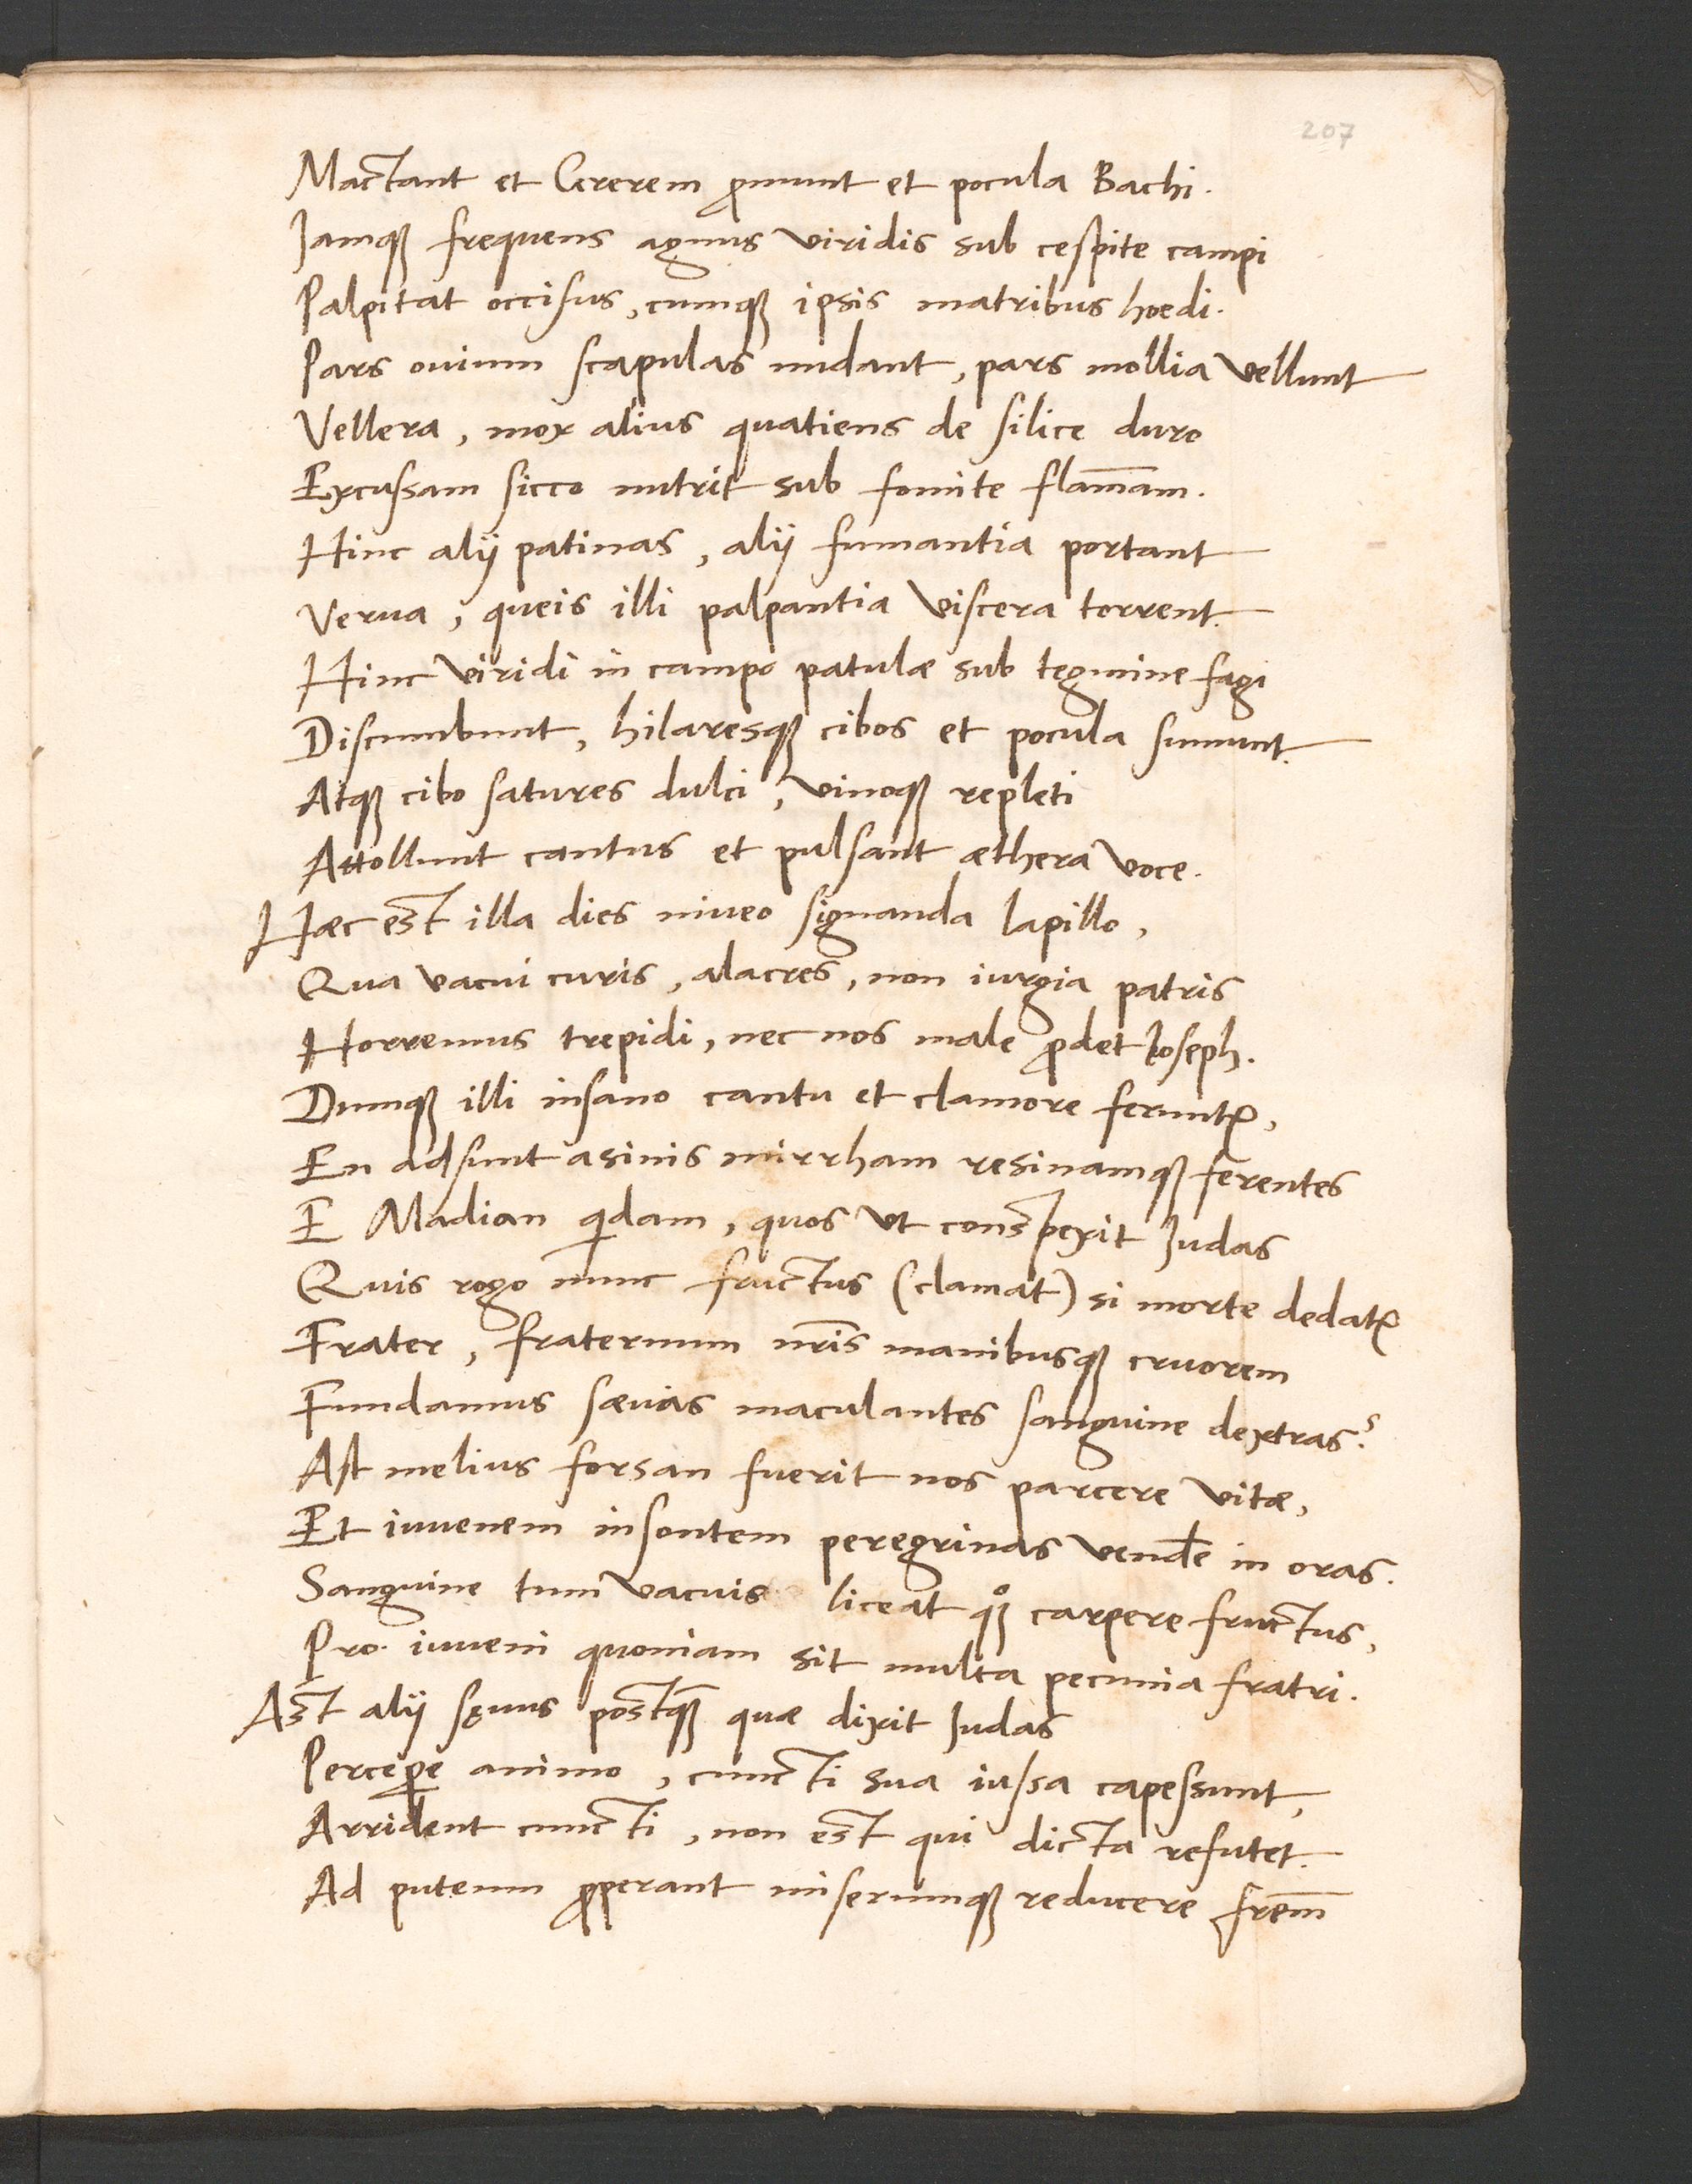 207
Mactant et Cererem ꝓmunt et pocula Bachi.
Iamqꝫ frequens agnus viridis sub cespite campi
Palpitat occisus, cumqꝫ ipsis matribus hoedi.
Pars ouium scapulas nudant, pars mollia vellunt
Vellera, mox alius quatiens de silice duro
Excussam sicco nutrit sub fomite flam̅am.
Hinc alij patinas, alij fumantia portant
Verua, queis illi palpantia viscera torrent.
Hinc viridi in campo patulæ sub tegmine fagi
Discumbunt, hilaresqꝫ cibos et pocula sumunt.
Atqꝫ cibo satures dulci, vinoqꝫ repleti
Attollunt cantus et pulsant æthera voce.
Hæc est illa dies niueo signanda lapillo,
Qua vacui curis, alacres, non iurgia patris
Horremus trepidi, nec nos male ꝓdet Ioseph.
Dumqꝫ illi insano cantu et clamore ferunt᷑,
En adsunt asinis mirrham resinamqꝫ ferentes
E Madian qͥdam, quos vt conspexit Iudas
Quis rogo nunc fructus (clamat) si morte dedat᷑
Frater, fraternum nr̅is manibusqꝫ cruorem
Fundamus sæuas maculantes sanguine dextras?
Ast melius forsan fuerit nos parcere vitæ,
Et iuuenem insontem peregrinas vend̅e in oras.
Sanguine tum vacuis liceat qꝫͦ carpere fructus,
Pro iuueni quoniam sit multa pecunia fratri.
Ast alij sęuus postqꝫ̅ quæ dixit Iudas
Perceꝑe animo, cuncti sua iussa capessunt,
Arrident cuncti, non est qui dicta refutet.
Ad puteum ꝓperant miserumqꝫ reducere frem̅